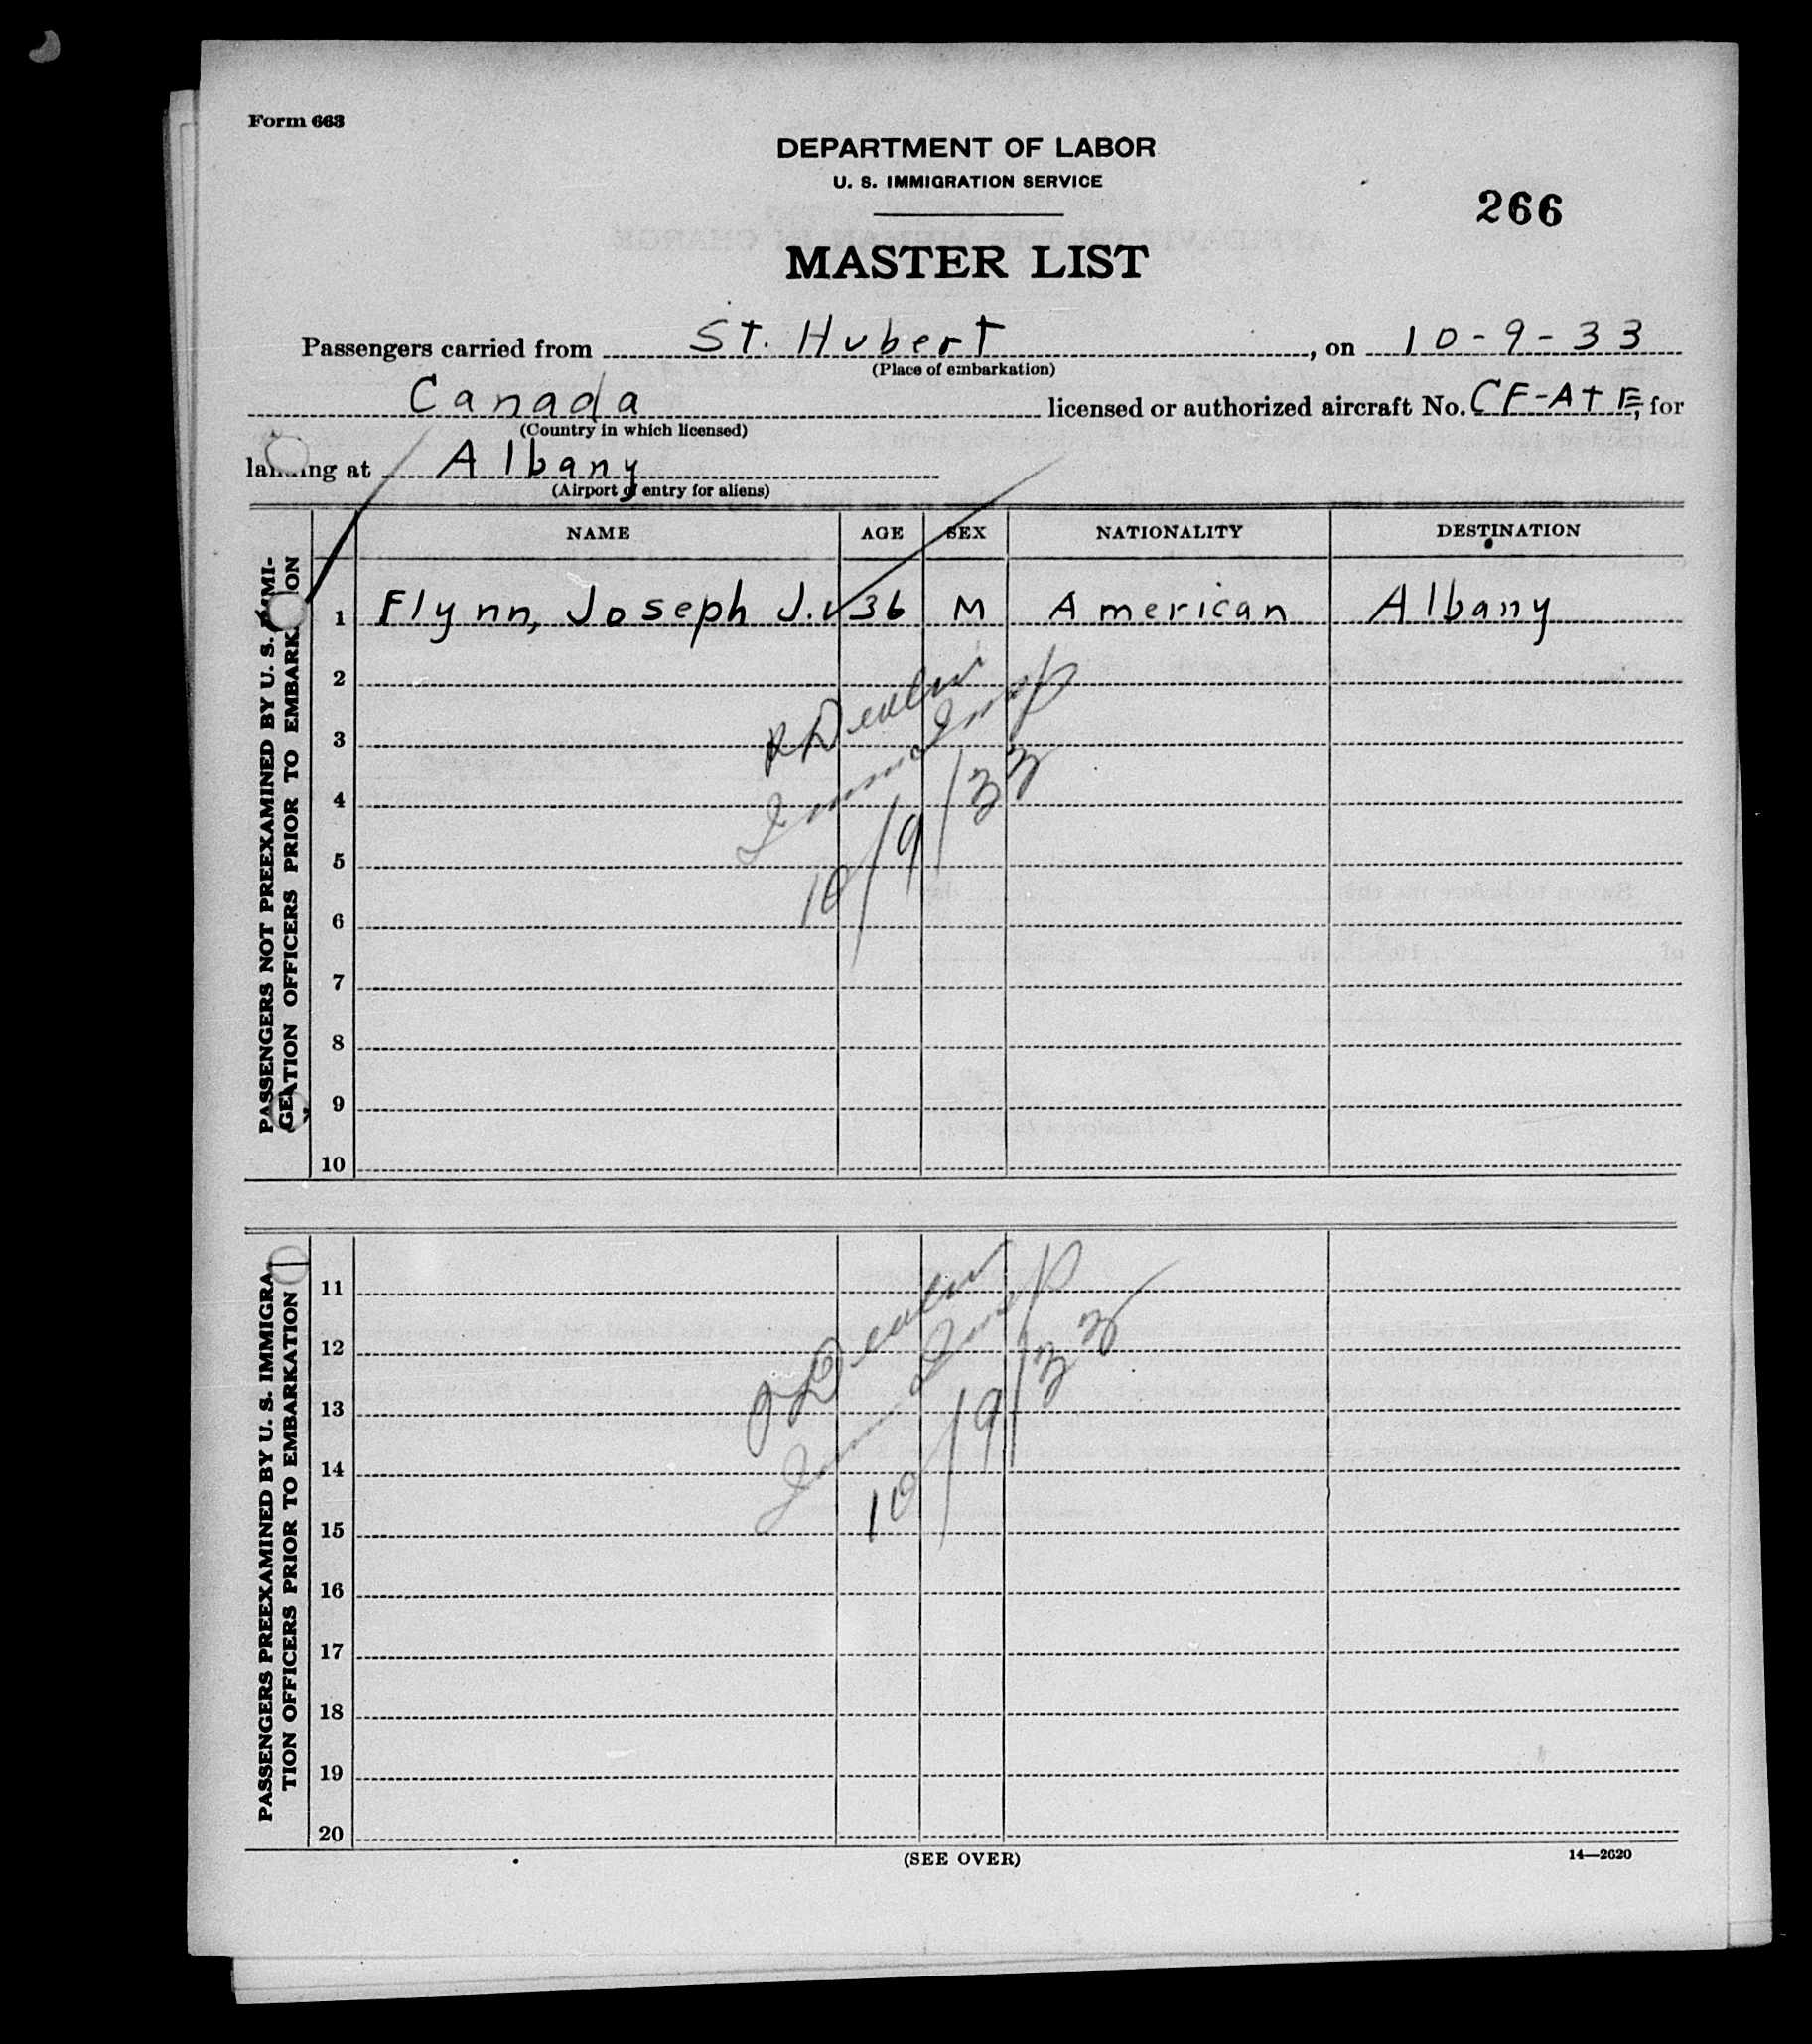 Form 663
DEPARTMENT OF LABOR
U. S. IMMIGRATION SERVICE
266
MASTER LIST
Passengers carried from St. Hubert, on 10-9-33
(Place of embarkation)
Canada licensed or authorized aircraft No. CF-AtE, for
(Country in which licensed)
landing at Albany
(Airport of entry for aliens)
NAME AGE SEX NATIONALITY DESTINATION
PASSENGERS NOT PREEXAMINED BY U. S. IMMI-
GRATION OFFICERS PRIOR TO EMBARKATION
1 Flynn, Joseph J. 36 M American Albany
2
3
4
5
6
7
8
9
10
Devlin
Immig Insp
10/9/33
PASSENGERS PREEXAMINED BY U. S. IMMIGRA-
TION OFFICERS PRIOR TO EMBARKATION
11
12
13
14
15
16
17
18
19
20
Devlin
Imm Insp
10/9/33
(SEE OVER)
14—2620